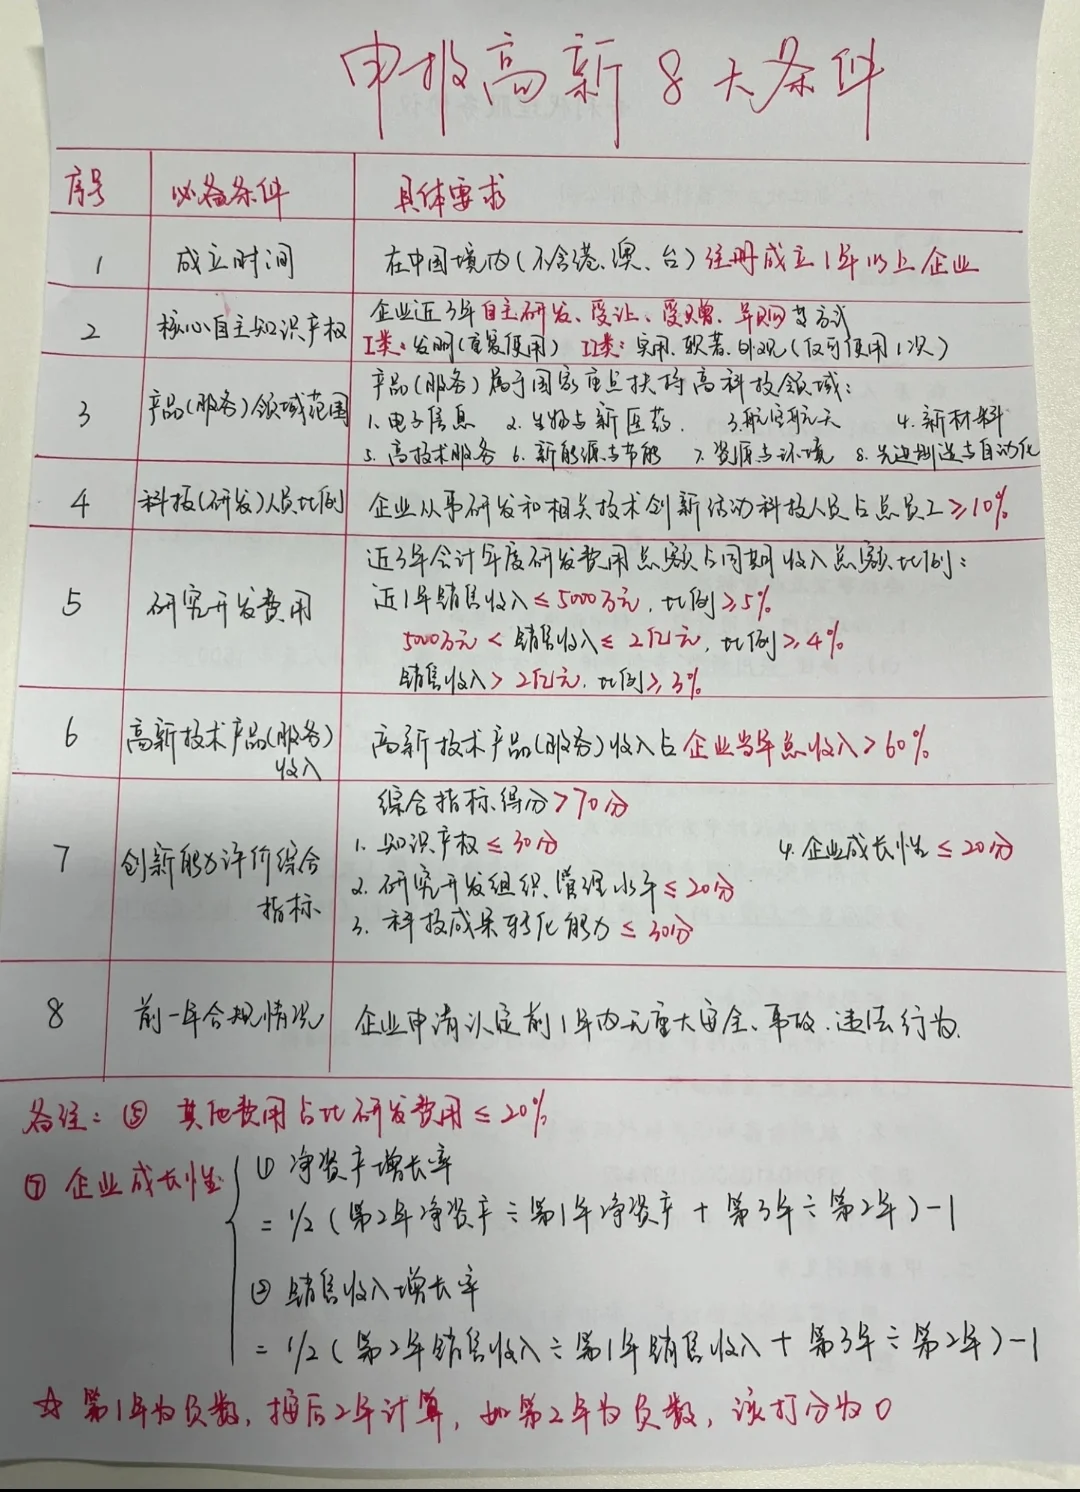 申报高新8大条件
序号 必备条件 具体要求
1 成立时间 在中国境内(不含港、澳、台)注册成立1年以上企业
2 核心自主知识产权 企业近3年自主研发、受让、受赠、并购等方式
I类:发明(重复使用) II类:实用、软著、外观(仅可使用1次)
3 产品(服务)领域范围 产品(服务)属于国家重点扶持高科技领域:
1.电子信息 2.生物与新医药. 3.航空航天 4.新材料
5.高技术服务 6.新能源与节能 7.资源与环境 8.先进制造与自动化
4 科技(研发)人员比例 企业从事研发和相关技术创新活动科技人员占总员工≥10%
5 研究开发费用 近3年会计年度研发费用总额占同期收入总额比例:
近1年销售收入≤5000万元,比例≥5%
5000万元<销售收入≤2亿元,比例≥4%
销售收入>2亿元,比例≥3%
6 高新技术产品(服务)收入 高新技术产品(服务)收入占企业当年总收入>60%
7 创新能力评价综合指标 综合指标得分>70分
1.知识产权≤30分 4.企业成长性≤20分
2.研究开发组织管理水平≤20分
3.科技成果转化能力≤30分
8 前一年合规情况 企业申请认定前1年内无重大安全、事故、违法行为.
备注:⑤ 其他费用占比研发费用≤20%
⑦ 企业成长性 ① 净资产增长率
=1/2(第2年净资产÷第1年净资产+第3年÷第2年)-1
② 销售收入增长率
=1/2(第2年销售收入÷第1年销售收入+第3年÷第2年)-1
☆ 第1年为负数,按后2年计算,如第2年为负数,该打分为0